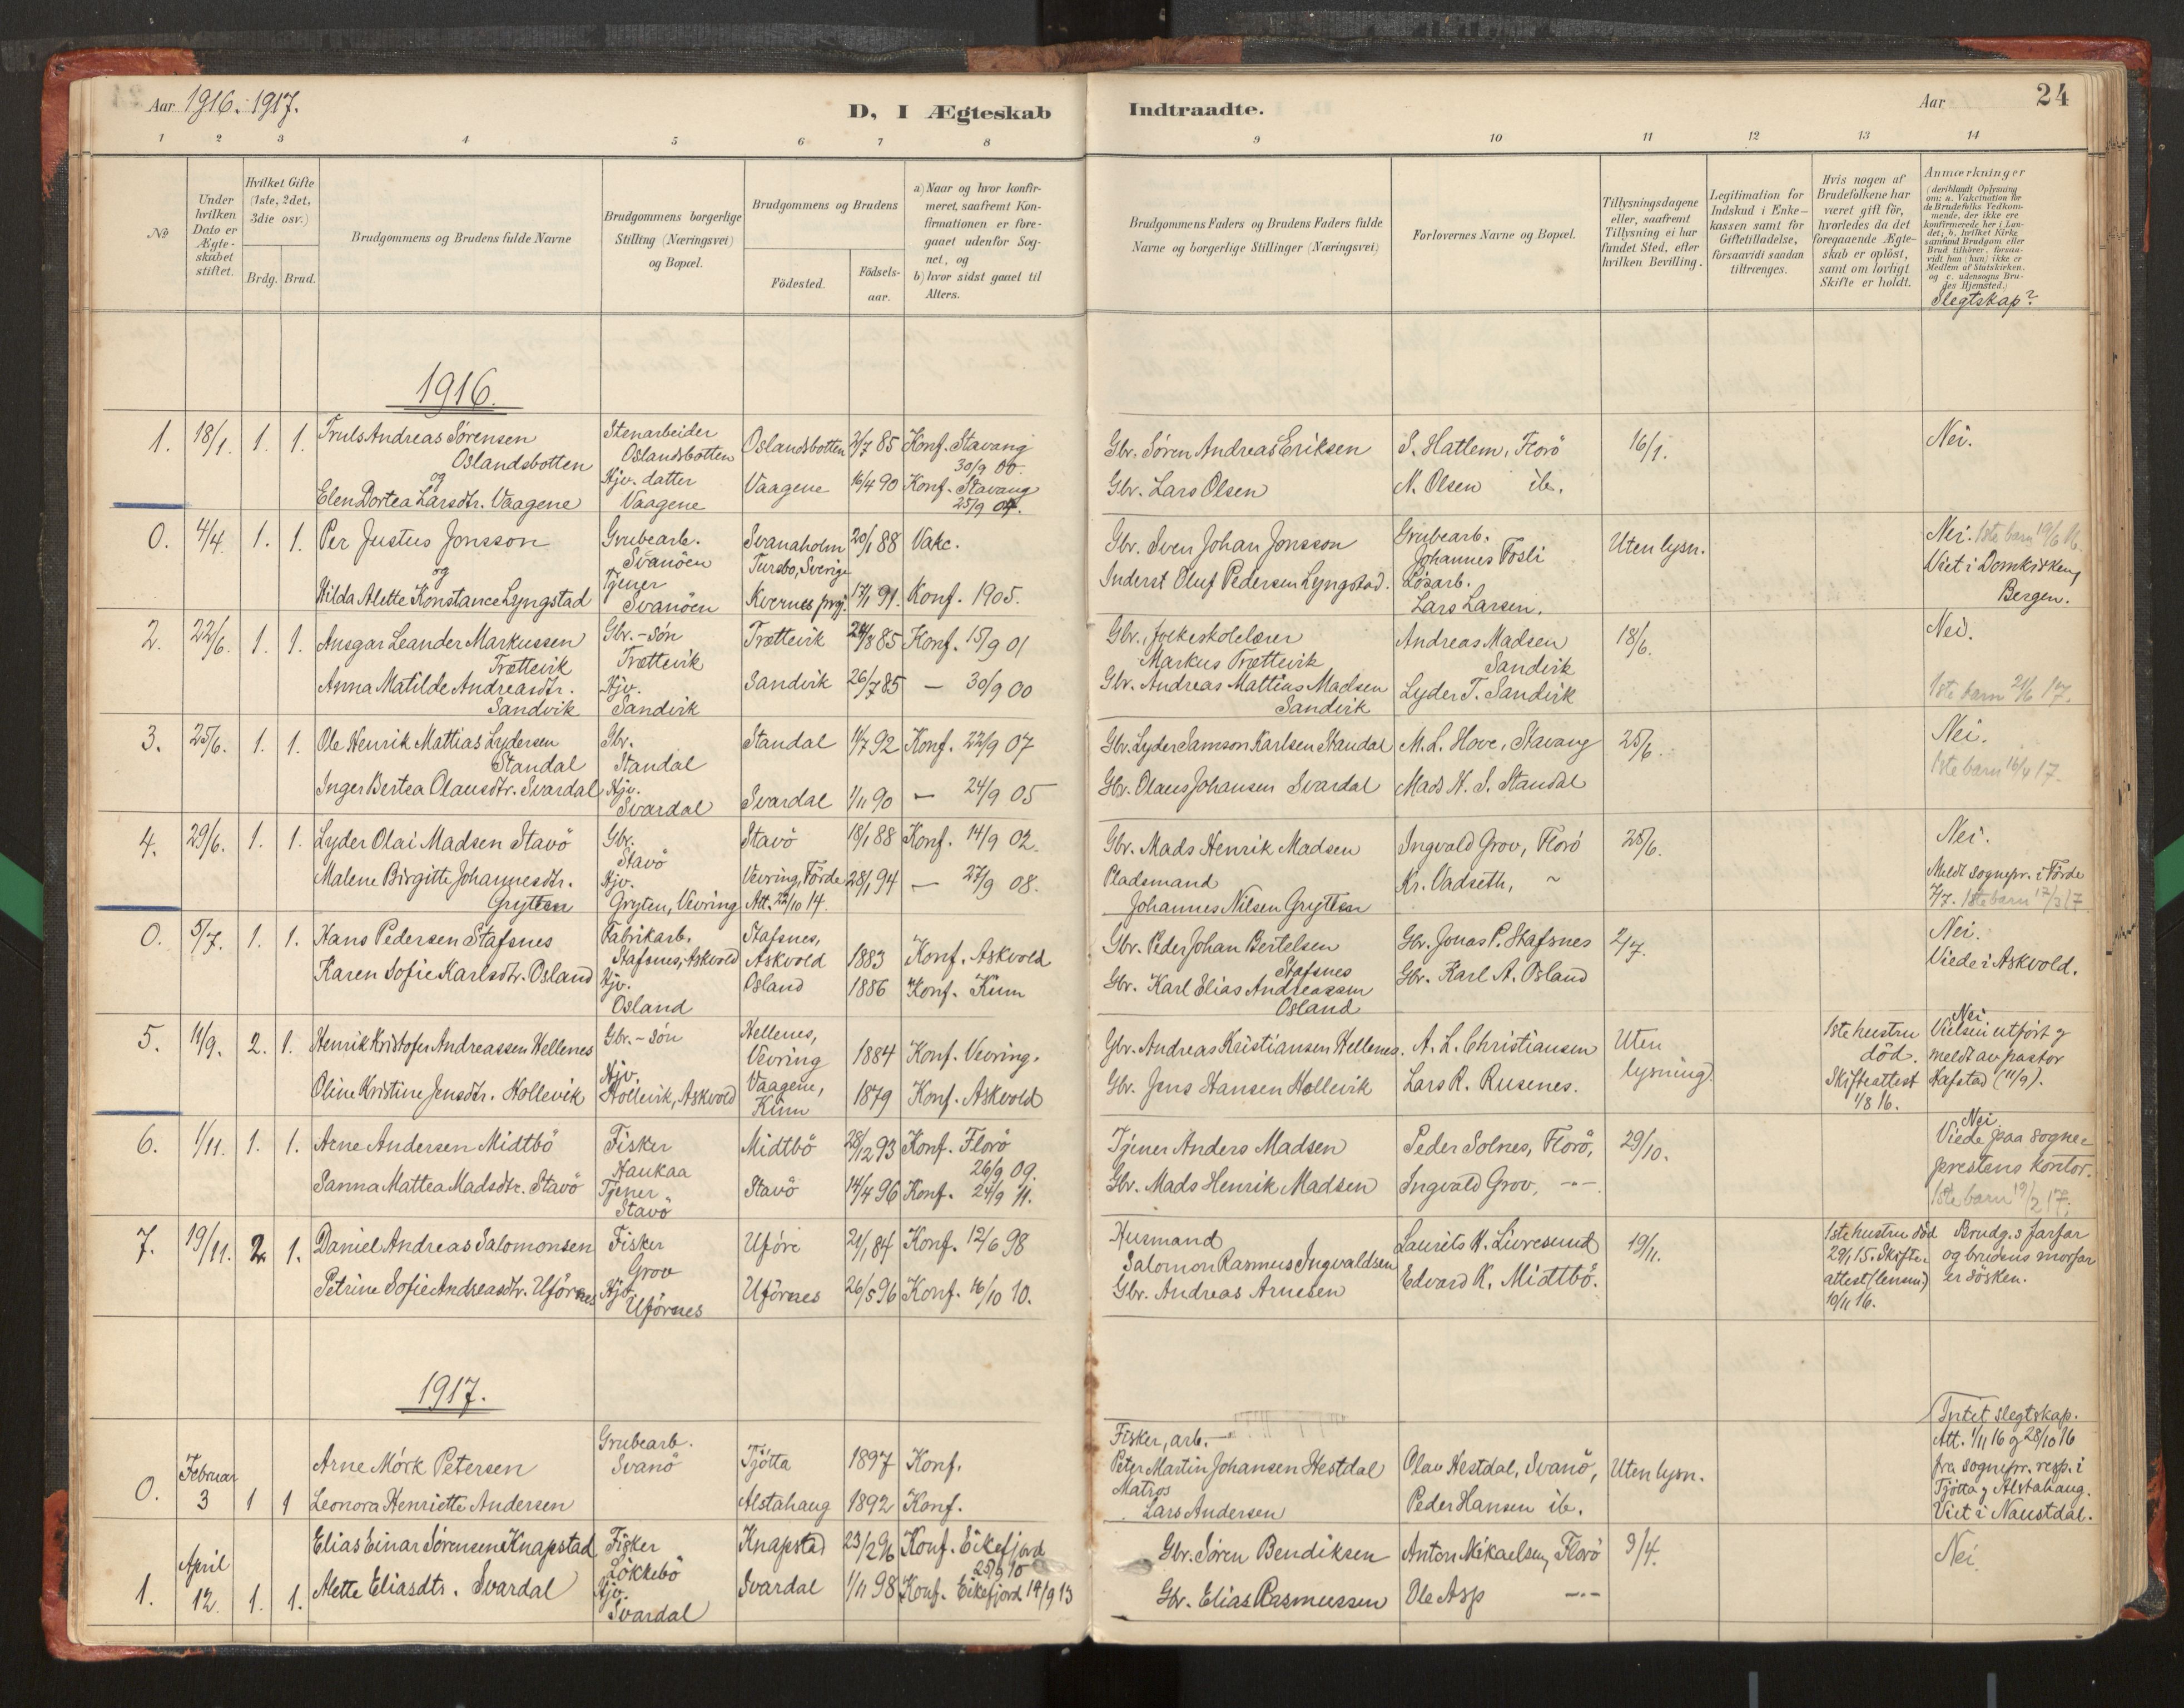 Aar 1916. 1917.
D, I Ægteskab
Indtraadte.
Aar
24
1 2 3 4 5 6 7 8
9 10 11 12 13 14
No
Under hvilken Dato er Ægteskabet stiftet.
Hvilket Gifte (1ste, 2det, 3die osv.)
Brdg. Brud.
Brudgommens og Brudens fulde Navne
Brudgommens borgerlige Stilling (Næringsvei) og Bopæl.
Brudgommens og Brudens
Födested.
Födsels-aar.
a) Naar og hvor konfirmeret, saafremt Konfirmationen er foregaaet udenfor Sognet, og
b) hvor sidst gaaet til Alters.
Brudgommens Faders og Brudens Faders fulde Navne og borgerlige Stillinger (Næringsvei)
Forlovernes Navne og Bopæl.
Tillysningsdagene eller, saafremt Tillysning ei har fundet Sted, efter hvilken Bevilling.
Legitimation for Indskud i Enkekassen samt for Giftetilladelse, forsaavidt saadan tiltrænges.
Hvis nogen af Brudefolkene har været gift för, hvorledes da det foregaaende Ægteskab er oplöst, samt om lovligt Skifte er holdt.
Anmærkninger
(deriblandt Oplysning om: a. Vakcination for de Brudefolks Vedkommende, der ikke ere konfirmerede her i Landet; b. hvilket Kirkesamfund Brudgom eller Brud tilhörer, forsaavidt han (hun) ikke er Medlem af Statskirken, og c. udensogns Brudes Hjemsted.)
Slegtskap?
1916.
1. 18/1. 1. 1. Truls Andreas Sørensen
Oslandsbotten
og
Elen Dortea Larsdtr. Vaagene
Stenarbeider
Oslandsbotten
Hjv. datter
Vaagene
Oslandsbotten 2/7 85 Konf. Stavang
30/9 00.
Vaagene 16/4 90 Konf. Stavang
25/9 04.
Gbr. Søren Andreas Eriksen
Gbr. Lars Olsen
S. Hatlem, Florö
N. Olsen ib.
16/1.
Nei.
0. 4/4. 1. 1. Per Justus Jonsson
og
Hilda Alette Konstance Lyngstad
Grubearb.
Svanöen
Tjener
Svanöen
Svanaholm 20/1 88 Vakc.
Tursbo, Sverige
Kvernes prgj. 17/1 91. Konf. 1905.
Gbr. Sven Johan Jonsson
Inderst Oluf Pedersen Lyngstad.
Grubearb.
Johannes Fosli
Lösarb.
Lars Larsen.
Uten lysn.
Nei. 1ste barn 19/6 16.
Viet i Domkirken,
Bergen.
2. 22/6. 1. 1. Ansgar Leander Markussen
Trættevik
Anna Matilde Andreasdtr.
Sandvik
Gbr.-sön
Trættevik
Hjv.
Sandvik
Trættevik 24/8 85 Konf. 15/9 01
Sandvik 26/7 85 — 30/9 00
Gbr., folkeskolelærer
Markus Trættevik
Gbr. Andreas Mattias Madsen
Sandvik
Andreas Madsen
Sandvik
Lyder T. Sandvik
18/6.
Nei.
1ste barn 21/6 17.
3. 25/6. 1. 1. Ole Henrik Mattias Lydersen
Standal
Inger Bertea Olausdtr. Svardal
Gbr.
Standal
Hjv.
Svardal
Standal 1/7 92 Konf. 22/9 07
Svardal 1/11 90 — 24/9 05
Gbr. Lyder Samson Karlsen Standal
Gbr. Olaus Johansen Svardal
M. L. Hove, Stavang
Mads H. S. Standal
25/6.
Nei.
1ste barn 16/4 17.
4. 29/6. 1. 1. Lyder Olai Madsen Stavö
Malene Birgitte Johannesdtr.
Gryten
Gbr.
Stavö
Hjv.
Gryten, Vevring
Stavö 18/1 88 Konf. 14/9 02.
Vevring, Förde 28/1 94 — 27/9 08.
Att. 22/10 14.
Gbr. Mads Henrik Madsen
Pladsmand
Johannes Nilsen Gryten
Ingvald Grov, Florö
Kr. Vadseth, ~
25/6.
Nei.
Meldt sognepr. i Förde
7/7. 1ste barn 17/3 17.
0. 5/7. 1. 1. Hans Pedersen Stafsnes
Karen Sofie Karlsdtr. Osland
Fabrikarb.
Stafsnes, Askvold
Hjv.
Osland
Stafsnes,
Askvold 1883 Konf. Askvold
Osland 1886 Konf. Kinn
Gbr. Peder Johan Bertelsen
Stafsnes
Gbr. Karl Elias Andreassen
Osland
Gbr. Jonas P. Stafsnes
Gbr. Karl A. Osland
2/7.
Nei.
Viede i Askvold.
5. 11/9. 2. 1. Henrik Kristofer Andreassen Hellenes
Oline Kristine Jensdtr. Hollevik
Gbr.-sön
Hjv.
Hollevik, Askvold
Hellenes,
Vevring 1884 Konf. Vevring.
Vaagene,
Kinn 1879 Konf. Askvold
Gbr. Andreas Kristiansen Hellenes.
Gbr. Jens Hansen Hollevik
A. L. Christiansen
Lars R. Rusenes.
Uten
lysning.
1ste hustru
död.
Skifteattest
1/8 16.
Nei
Vielsen utfört og
meldt av pastor
Hafstad (11/9).
6. 1/11. 1. 1. Arne Andersen Midtbö
Sanna Mattea Madsdtr. Stavö
Fisker
Haukaa
Tjener
Stavö
Midtbö 28/12 93 Konf. Florö
26/9 09.
Stavö 14/4 96 Konf. 24/9 11.
Tjener Anders Madsen
Gbr. Mads Henrik Madsen
Peder Solnes, Florö,
Ingvald Grov, -"-
29/10.
Nei.
Viede paa sogne-
prestens kontor.
1ste barn 19/2 17.
7. 19/11. 2. 1. Daniel Andreas Salomonsen
Petrine Sofie Andreasdtr. Ufórnes
Fisker
Grov
Hjv.
Ufórnes
Ufóre 21/1 84 Konf. 12/6 98
Ufórnes 26/5 96 Konf. 16/10 10.
Husmand
Salomon Rasmus Ingvaldsen
Gbr. Andreas Arnesen
Laurits K. Livresund
Edvard K. Midtbö.
19/11.
1ste hustru död
29/1 15. Skifte-
attest (lensm.)
10/11 16.
Brudg.s farfar
og brudens morfar
er sösken.
1917.
0. Februar
3 1 1 Arne Mörk Petersen
Leonora Henriette Andersen
Grubearb.
Svanö
Tjötta 1897 Konf.
Alstahaug 1892 Konf.
Fisker, arb.
Peter Martin Johansen Hestdal
Matros
Lars Andersen
Olav Hestdal, Svanö,
Peder Hansen ib.
Uten lysn.
Intet slegtskap.
Att. 1/11 16 og 28/10 16
fra sognepr. resp. i
Tjötta og Alstahaug.
Viet i Naustdal.
1. April
12. 1. 1. Elias Einar Sörensen Knapstad
Alette Eliasdtr. Svardal
Fisker
Lökkebö
Hjv.
Svardal
Knapstad 23/2 96 Konf. Eikefjord
25/9 10
Svardal 1/11 98 Konf. Eikefjord 14/9 13
Gbr. Sören Bendiksen
Gbr. Elias Rasmussen
Anton Mikaelsen, Florö
Ole Asp -"-
9/4.
Nei.